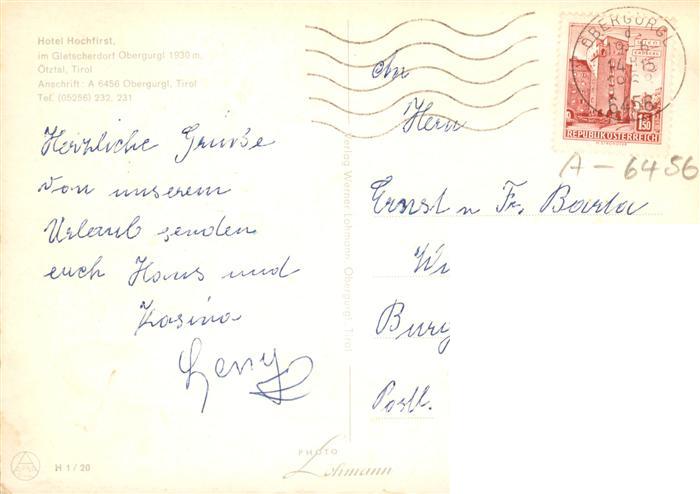 Hotel Hochfirst,
im Gletscherdorf Obergurgl 1930 m,
Ötztal, Tirol
Anschrift: A 6456 Obergurgl, Tirol
Tel. (05256) 232, 231
Herzliche Grüße
von unserem
Urlaub senden
euch Hans und
Rosina
H 1/20
Verlag Werner Lohmann, Obergurgl, Tirol
PHOTO
Lohmann
OBERGURGL
6456
150
REPUBLIK ÖSTERREICH
A-6456
An
Herrn
Ernst u Fr. Barta
Wi
Burg
Postl.